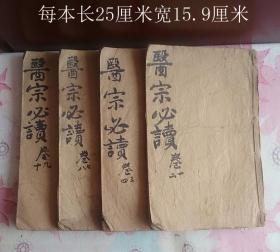 每本长25厘米宽15.9厘米
醫宗必讀
卷一二
醫宗必讀
卷三四
醫宗必讀
卷八
醫宗必讀
卷九十